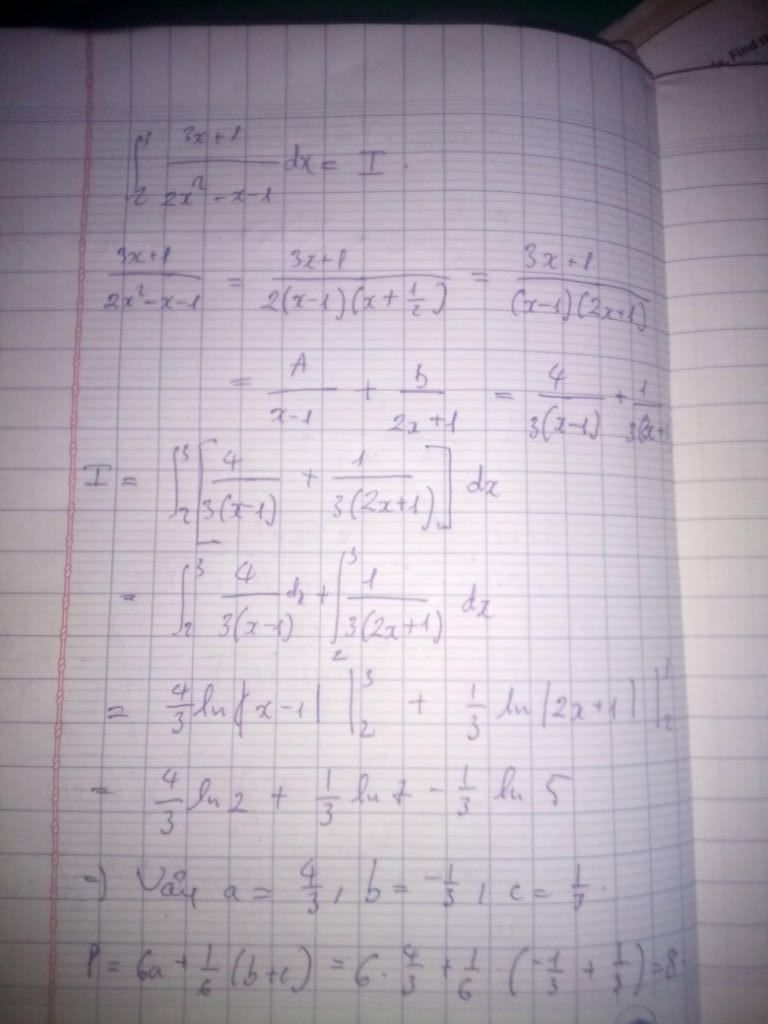 ∫₂³ (3x+1)/(2x²-x-1) dx = I.
(3x+1)/(2x²-x-1) = (3x+1)/(2(x-1)(x+1/2)) = (3x+1)/((x-1)(2x+1))
= A/(x-1) + B/(2x+1) = 4/(3(x-1)) + 1/(3(2x+
I = ∫₂³ [4/(3(x-1)) + 1/(3(2x+1))] dx
= ∫₂³ 4/(3(x-1)) dx + ∫₂³ 1/(3(2x+1)) dx
= 4/3 ln|x-1| |₂³ + 1/3 ln|2x+1| |₂³
= 4/3 ln 2 + 1/3 ln 7 - 1/3 ln 5
=> Vậy a = 4/3, b = -1/3, c = 1/3.
P = 6a + 1/6 (b+c) = 6. 4/3 + 1/6 . (-1/3 + 1/3) = 8.
Find th